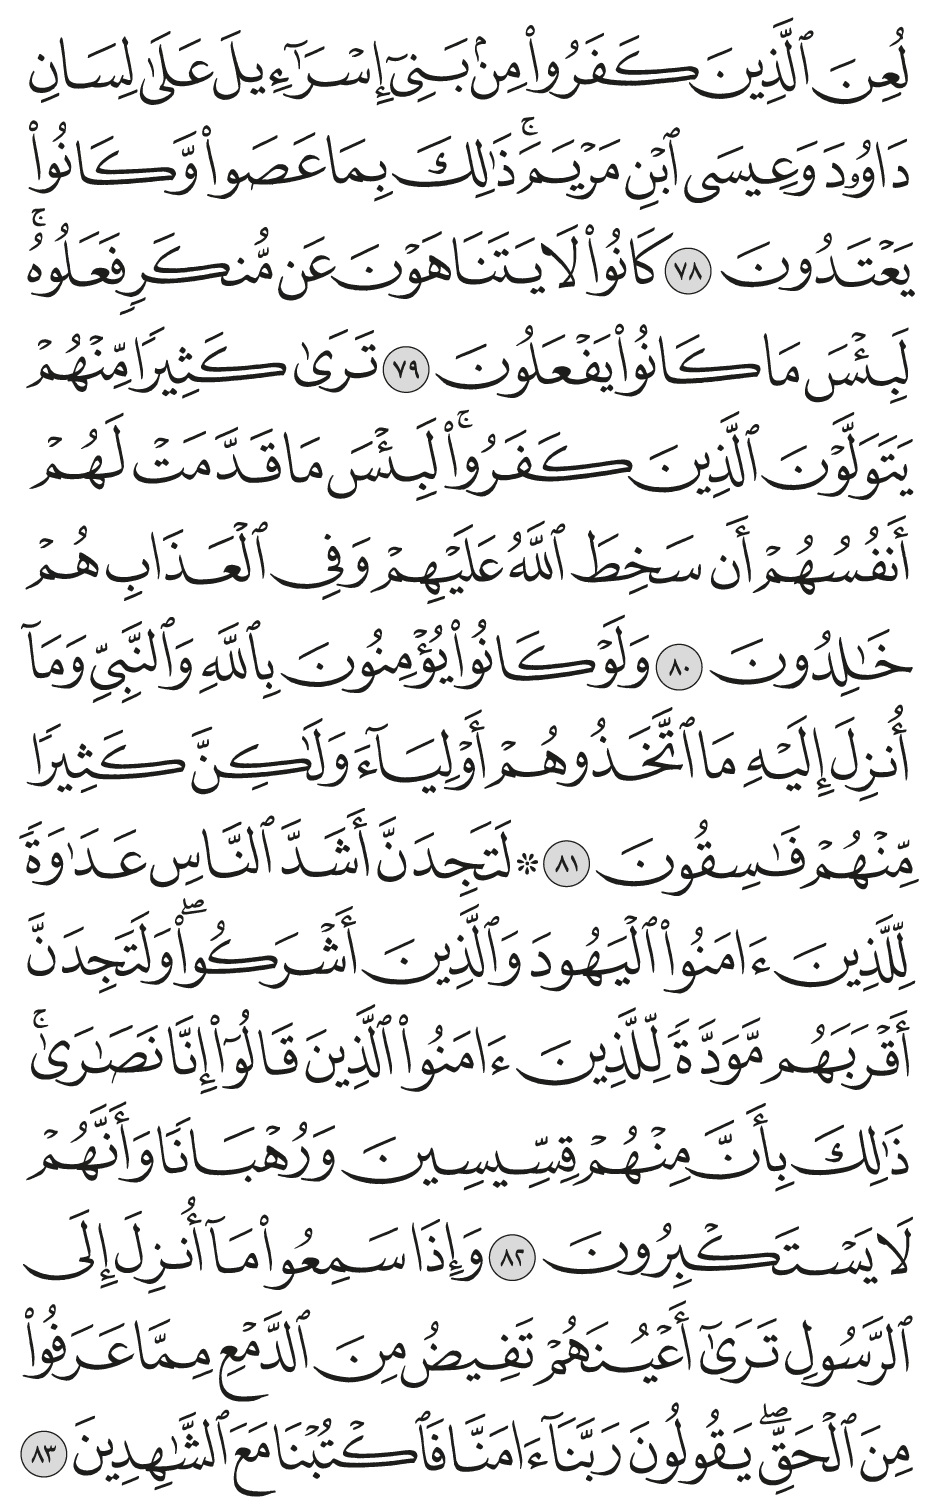 لُعِنَ ٱلَّذِينَ كَفَرُوا۟ مِنۢ بَنِىٓ إِسْرَٰٓءِيلَ عَلَىٰ لِسَانِ
دَاوُۥدَ وَعِيسَى ٱبْنِ مَرْيَمَ ۚ ذَٰلِكَ بِمَا عَصَوا۟ وَّكَانُوا۟
يَعْتَدُونَ ٧٨ كَانُوا۟ لَا يَتَنَاهَوْنَ عَن مُّنكَرٍ فَعَلُوهُ ۚ
لَبِئْسَ مَا كَانُوا۟ يَفْعَلُونَ ٧٩ تَرَىٰ كَثِيرًا مِّنْهُمْ
يَتَوَلَّوْنَ ٱلَّذِينَ كَفَرُوا۟ ۚ لَبِئْسَ مَا قَدَّمَتْ لَهُمْ
أَنفُسُهُمْ أَن سَخِطَ ٱللَّهُ عَلَيْهِمْ وَفِى ٱلْعَذَابِ هُمْ
خَٰلِدُونَ ٨٠ وَلَوْ كَانُوا۟ يُؤْمِنُونَ بِٱللَّهِ وَٱلنَّبِىِّ وَمَآ
أُنزِلَ إِلَيْهِ مَا ٱتَّخَذُوهُمْ أَوْلِيَآءَ وَلَٰكِنَّ كَثِيرًا
مِّنْهُمْ فَٰسِقُونَ ٨١ ۞ لَتَجِدَنَّ أَشَدَّ ٱلنَّاسِ عَدَٰوَةً
لِّلَّذِينَ ءَامَنُوا۟ ٱلْيَهُودَ وَٱلَّذِينَ أَشْرَكُوا۟ ۖ وَلَتَجِدَنَّ
أَقْرَبَهُم مَّوَدَّةً لِّلَّذِينَ ءَامَنُوا۟ ٱلَّذِينَ قَالُوٓا۟ إِنَّا نَصَٰرَىٰ ۚ
ذَٰلِكَ بِأَنَّ مِنْهُمْ قِسِّيسِينَ وَرُهْبَانًا وَأَنَّهُمْ
لَا يَسْتَكْبِرُونَ ٨٢ وَإِذَا سَمِعُوا۟ مَآ أُنزِلَ إِلَى
ٱلرَّسُولِ تَرَىٰٓ أَعْيُنَهُمْ تَفِيضُ مِنَ ٱلدَّمْعِ مِمَّا عَرَفُوا۟
مِنَ ٱلْحَقِّ ۖ يَقُولُونَ رَبَّنَآ ءَامَنَّا فَٱكْتُبْنَا مَعَ ٱلشَّٰهِدِينَ ٨٣